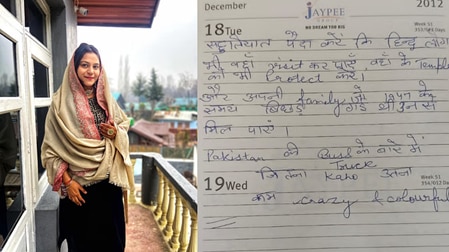 December
2012
JAYPEE
GROUP
WE DREAM FOR BIG
Week 51
353/013 Days
18 Tue
पैदा करें कि हिन्दू लोग
भी वहाँ visit कर पाएँ वहाँ के Temple
को भी Protect करें।
और अपनी family जो 1947 के
समय बिछड़ गई थी उन से
मिल पाएं।
Pakistan की Bus के बारे में
Truck
जितना कहो उतना
19 Wed
Week 51
354/012 Days
कम crazy & colourful